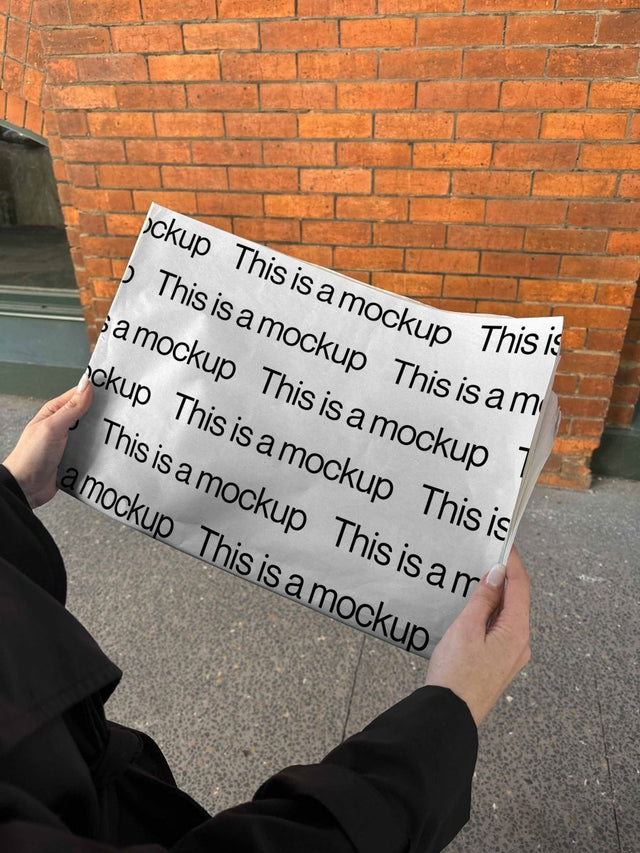 ockup This is a mockup This is
This is a mockup This is a m
a mockup This is a mockup
ockup This is a mockup This is
This is a mockup This is a m
a mockup This is a mockup